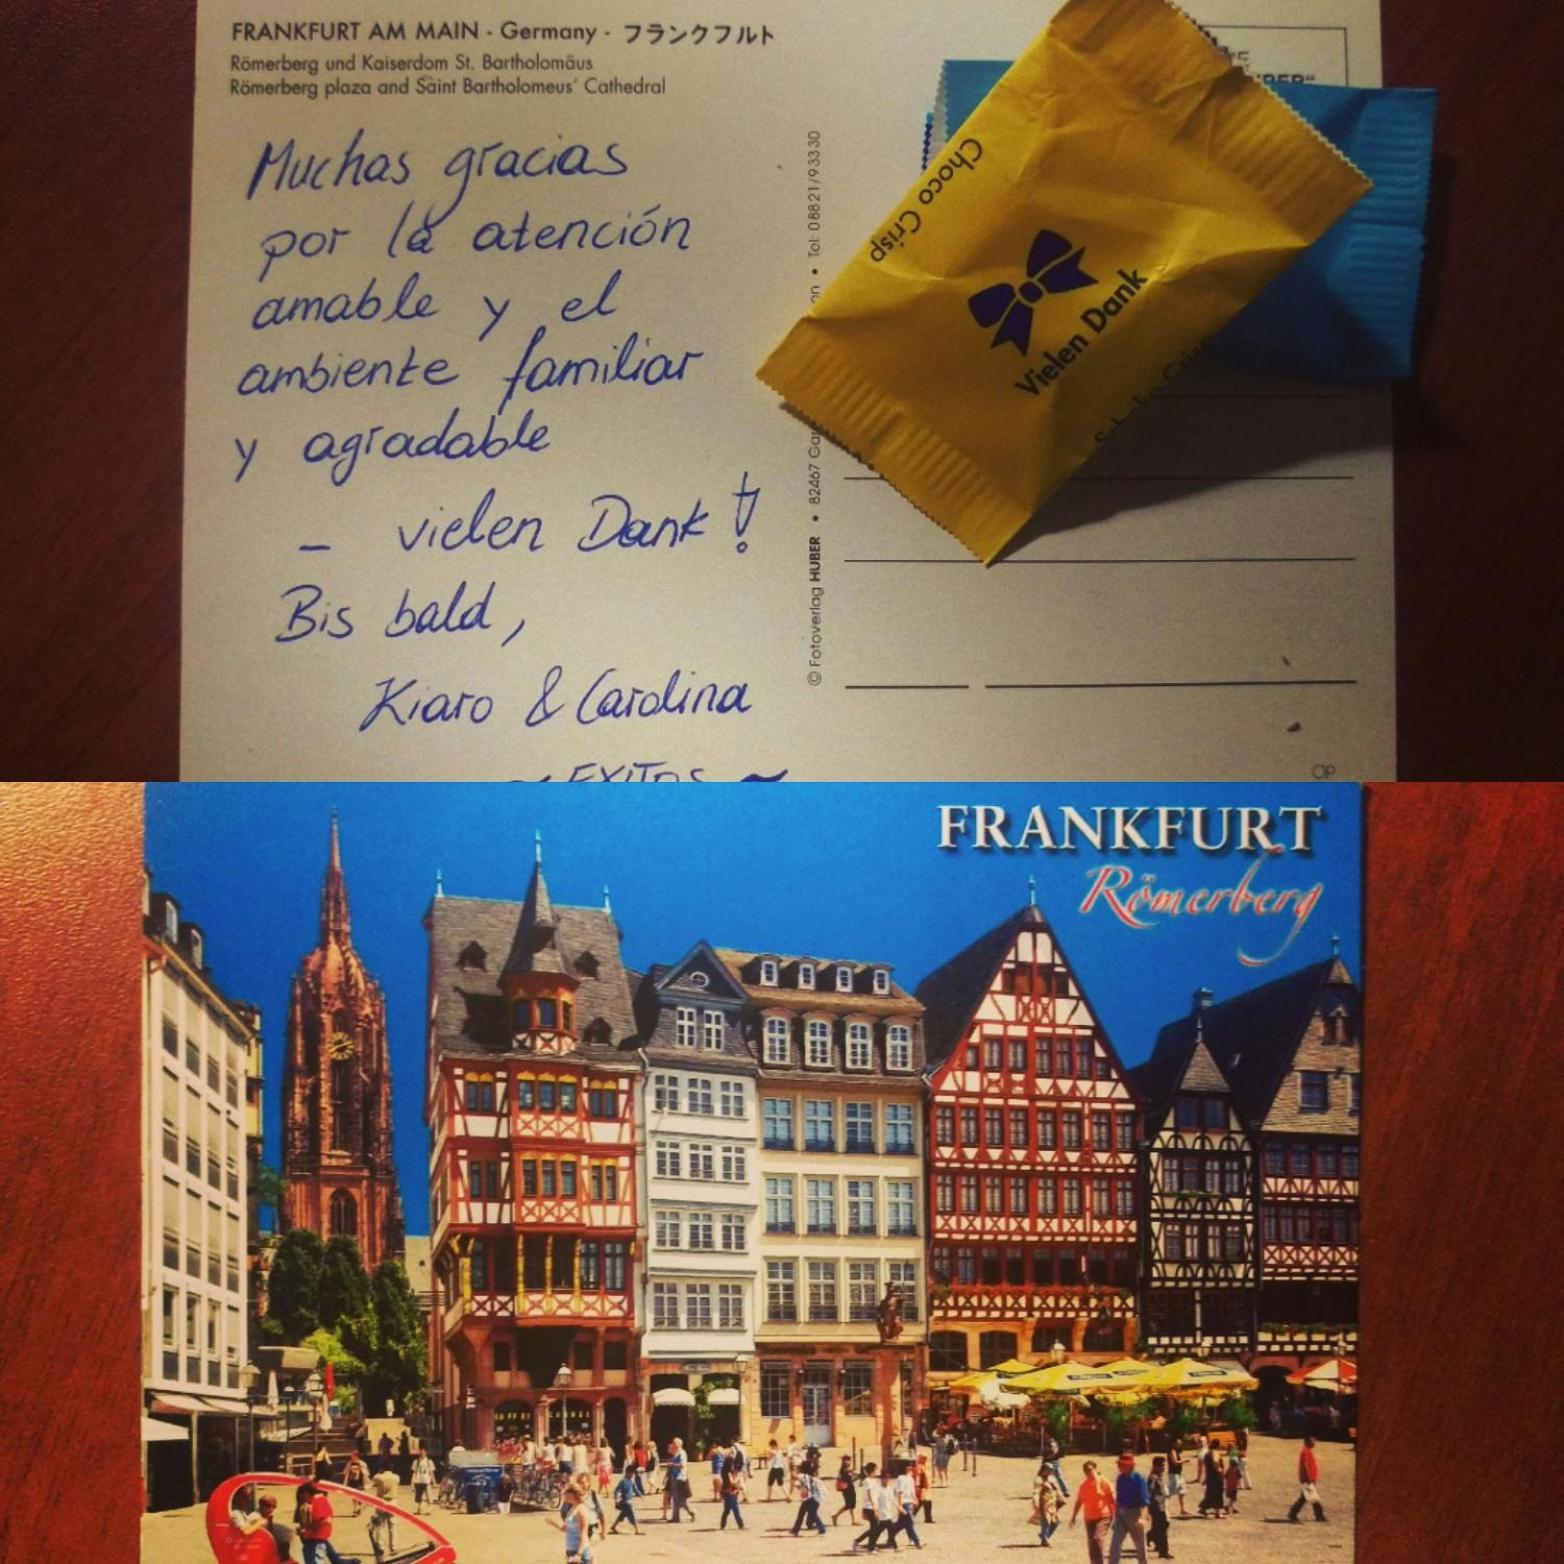 FRANKFURT AM MAIN - Germany - フランクフルト
Römerberg und Kaiserdom St. Bartholomäus
Römerberg plaza and Saint Bartholomeus' Cathedral
Muchas gracias
por la atención
amable y el
ambiente familiar
y agradable
- vielen Dank!
Bis bald,
Kiaro & Carolina
~ EXITOS ~
© Fotoverlag HUBER • 82467 • Tel: 08821/93330
Choco Crisp
Vielen Dank
OP
FRANKFURT
Römerberg